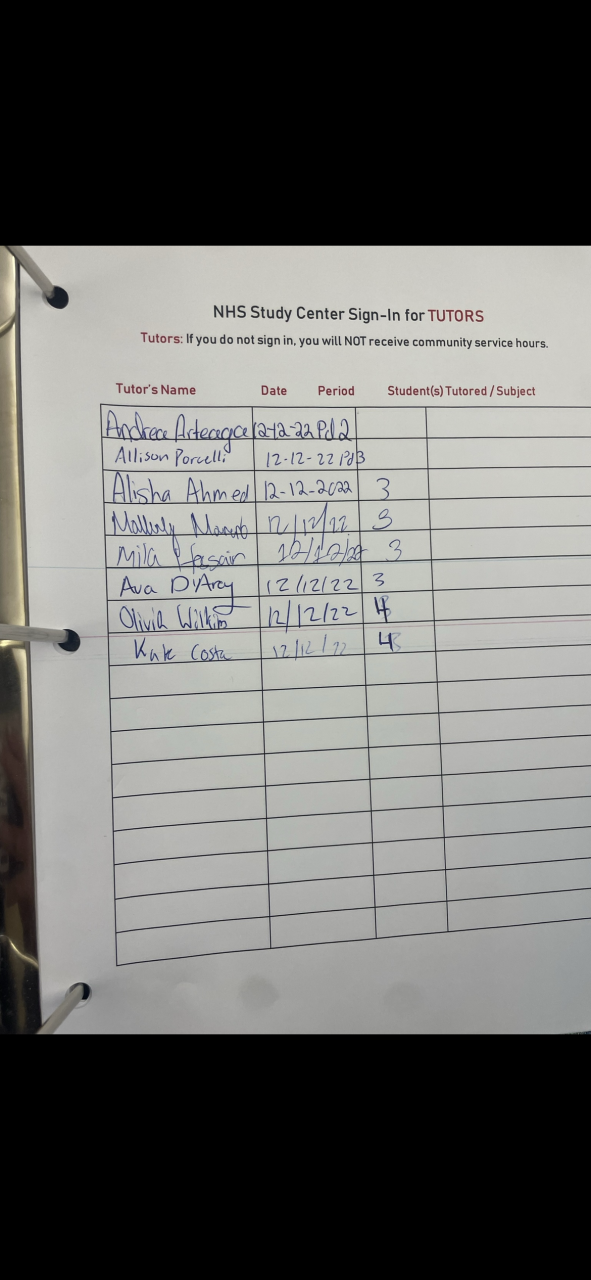 NHS Study Center Sign-In for TUTORS
Tutors: If you do not sign in, you will NOT receive community service hours.
Tutor's Name Date Period Student(s) Tutored / Subject
Andrea Arteaga 12-12-22 Pd 2
Allison Porcelli 12-12-22 Pd3
Alisha Ahmed 12-12-2022 3
Mallory 12/12/22 3
Mila 12/12/22 3
Ava D'Arcy 12/12/22 3
Olivia Wilkins 12/12/22 4
Kate Costa 12/12/22 4